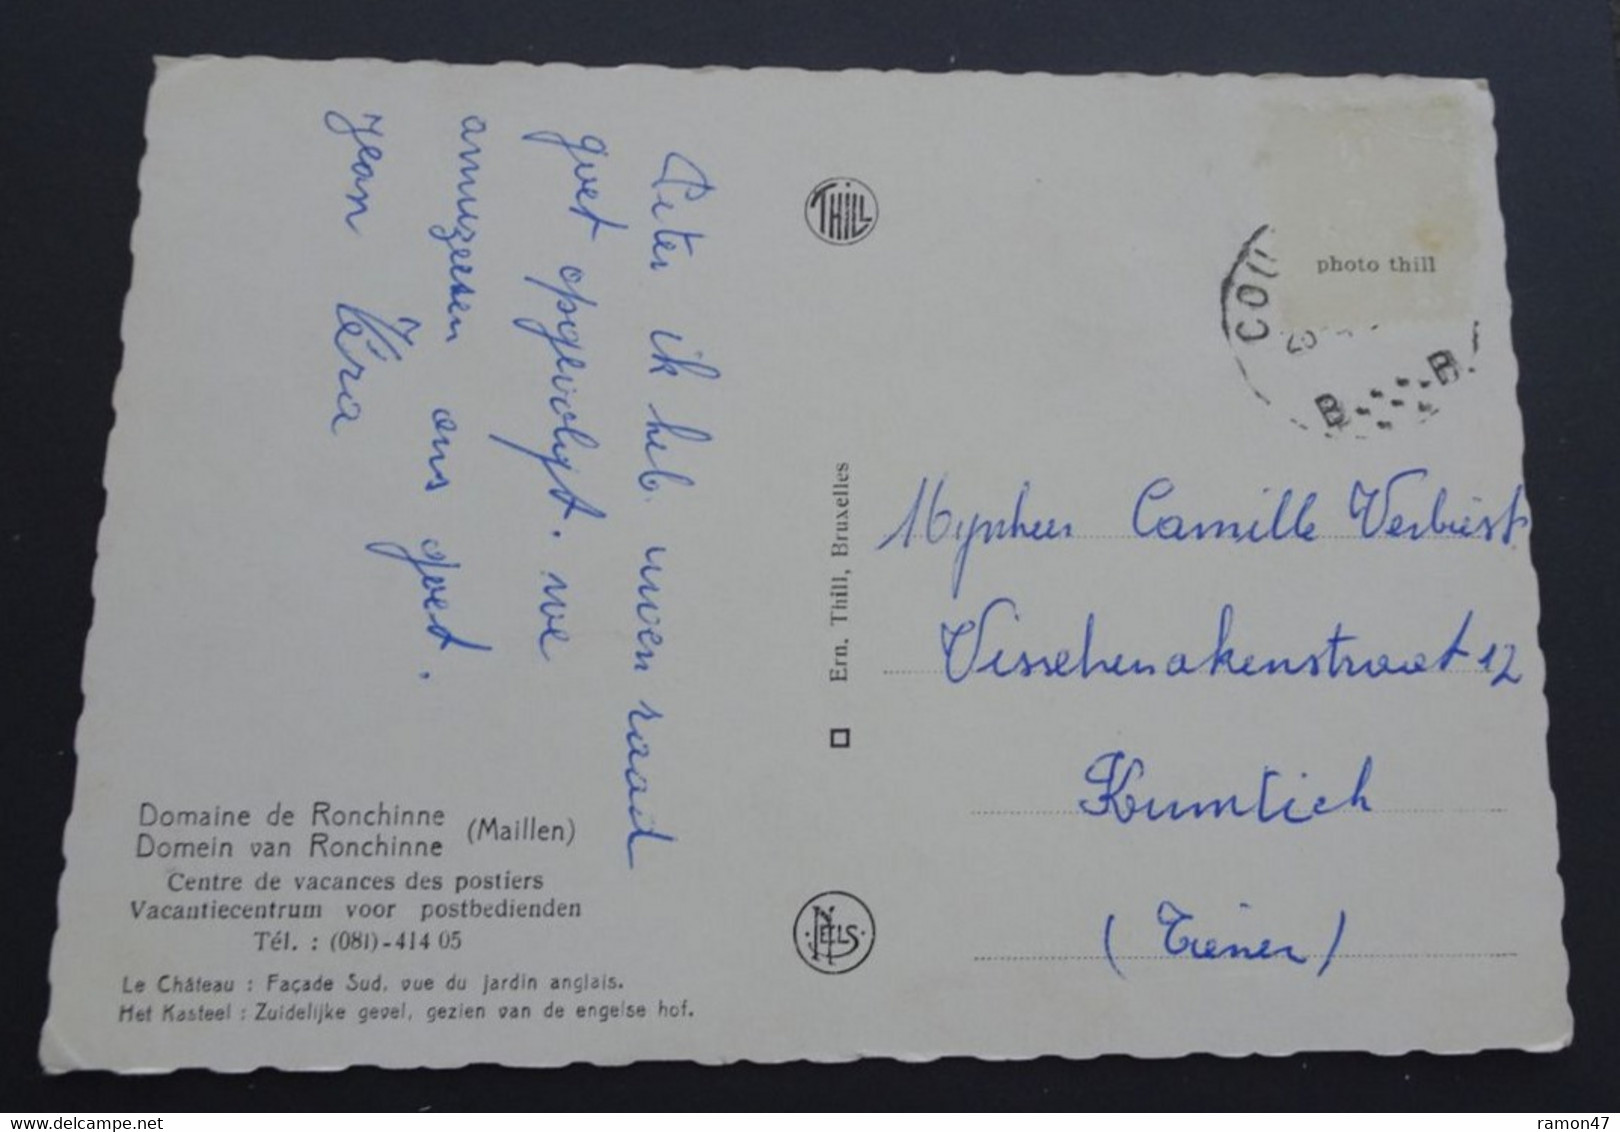 Peter ik heb uwen raad
goet opgevolgt. we
amuzeeren ons goed.
Jean Véra
THILL
photo thill
COU
B B
Ern. Thill, Bruxelles
Mynheer Camille Verbiest
Vissehenakenstraat 12
Kumtich
(Tienen)
NELS
Domaine de Ronchinne
Domein van Ronchinne
(Maillen)
Centre de vacances des postiers
Vacantiecentrum voor postbedienden
Tél. : (081)-414 05
Le Château : Façade Sud, vue du jardin anglais.
Het Kasteel : Zuidelijke gevel, gezien van de engelse hof.
ramon47